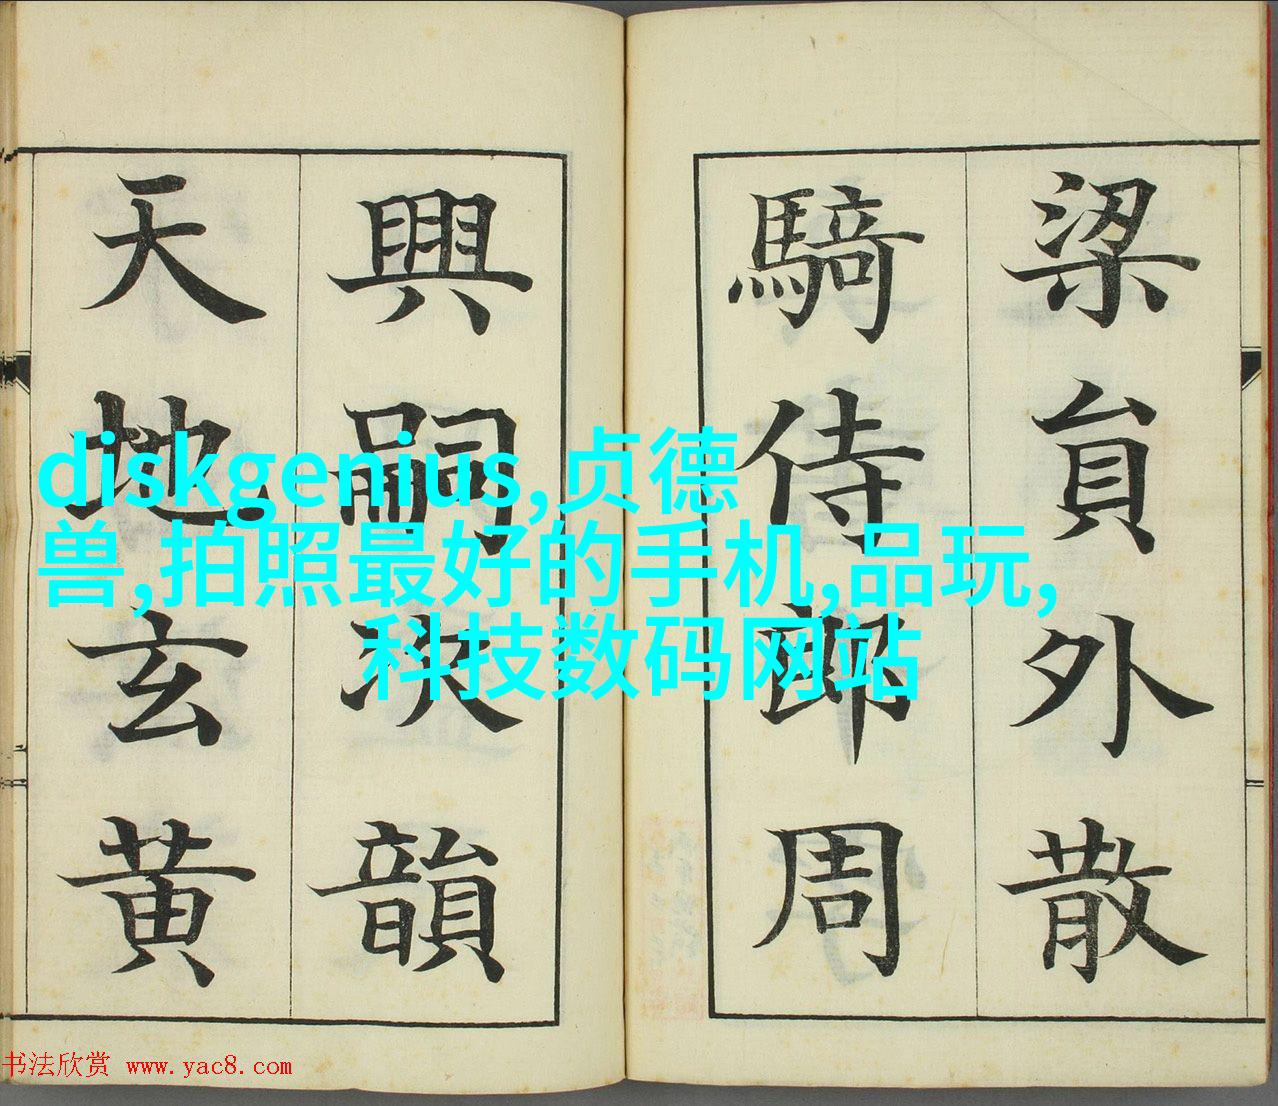 梁貟外散
騎侍郎周
興嗣次韻
天地玄黄
diskgenius,贞德
兽,拍照最好的手机,品玩,
科技数码网站
书法欣赏 www.yac8.com